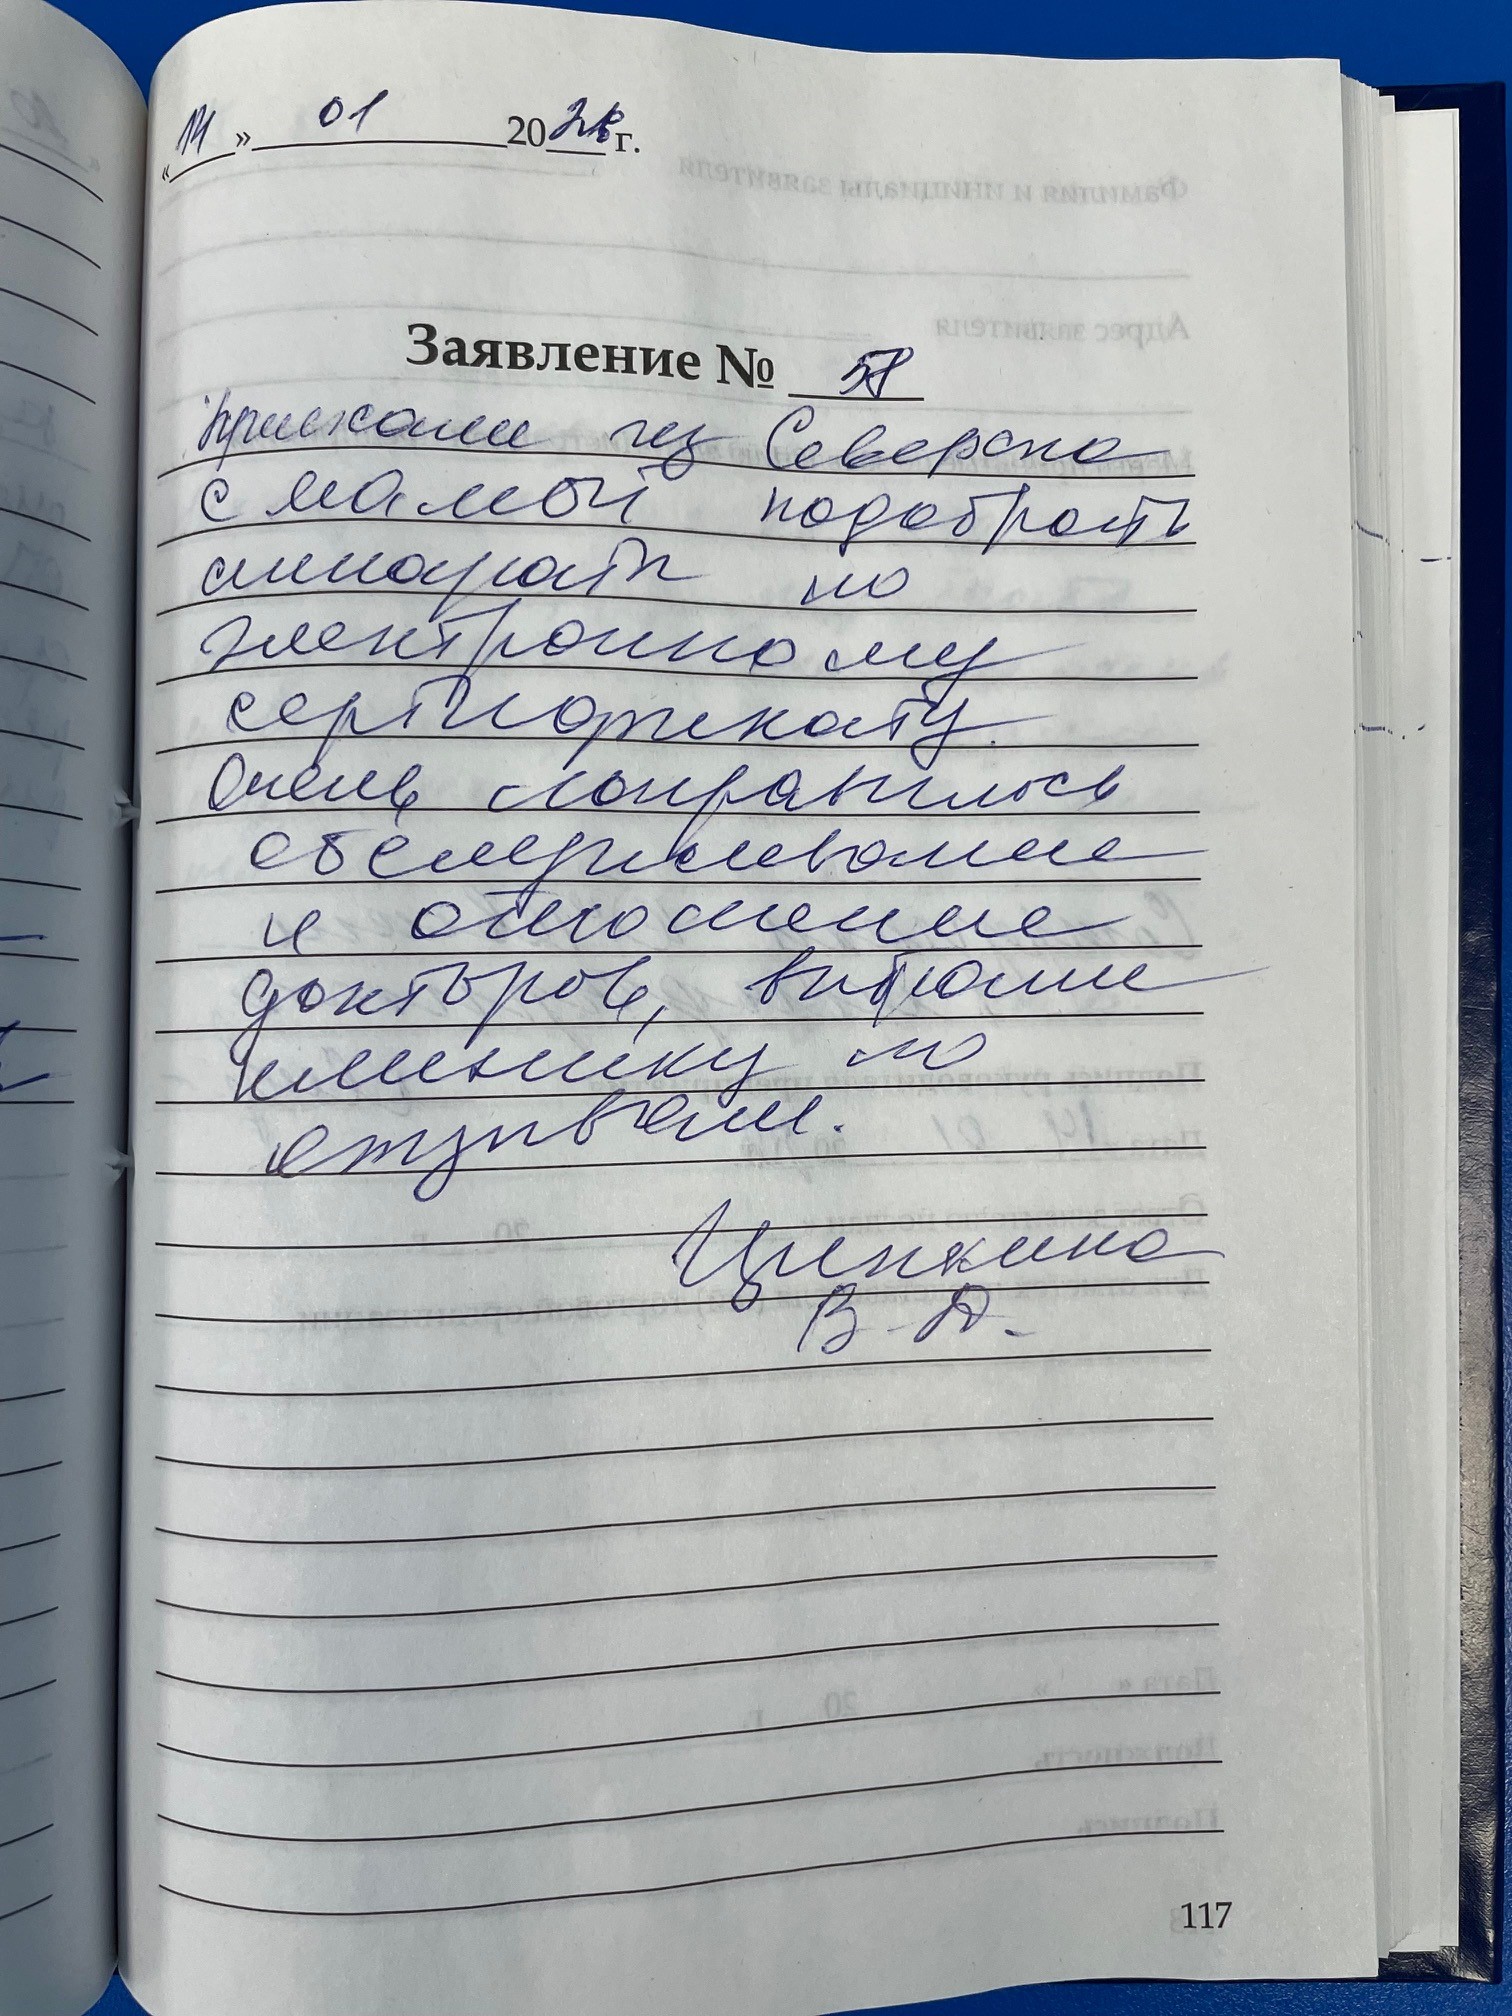 «14» 01 20 г.
Заявление № 58
Приезжали из Северска
с мамой подобрать
аппараты по
электронному
сертификату.
Очень понравилось
обслуживание
и отношение
докторов, выбрали
клинику по
отзывам.
Цепкина
В. А.
117